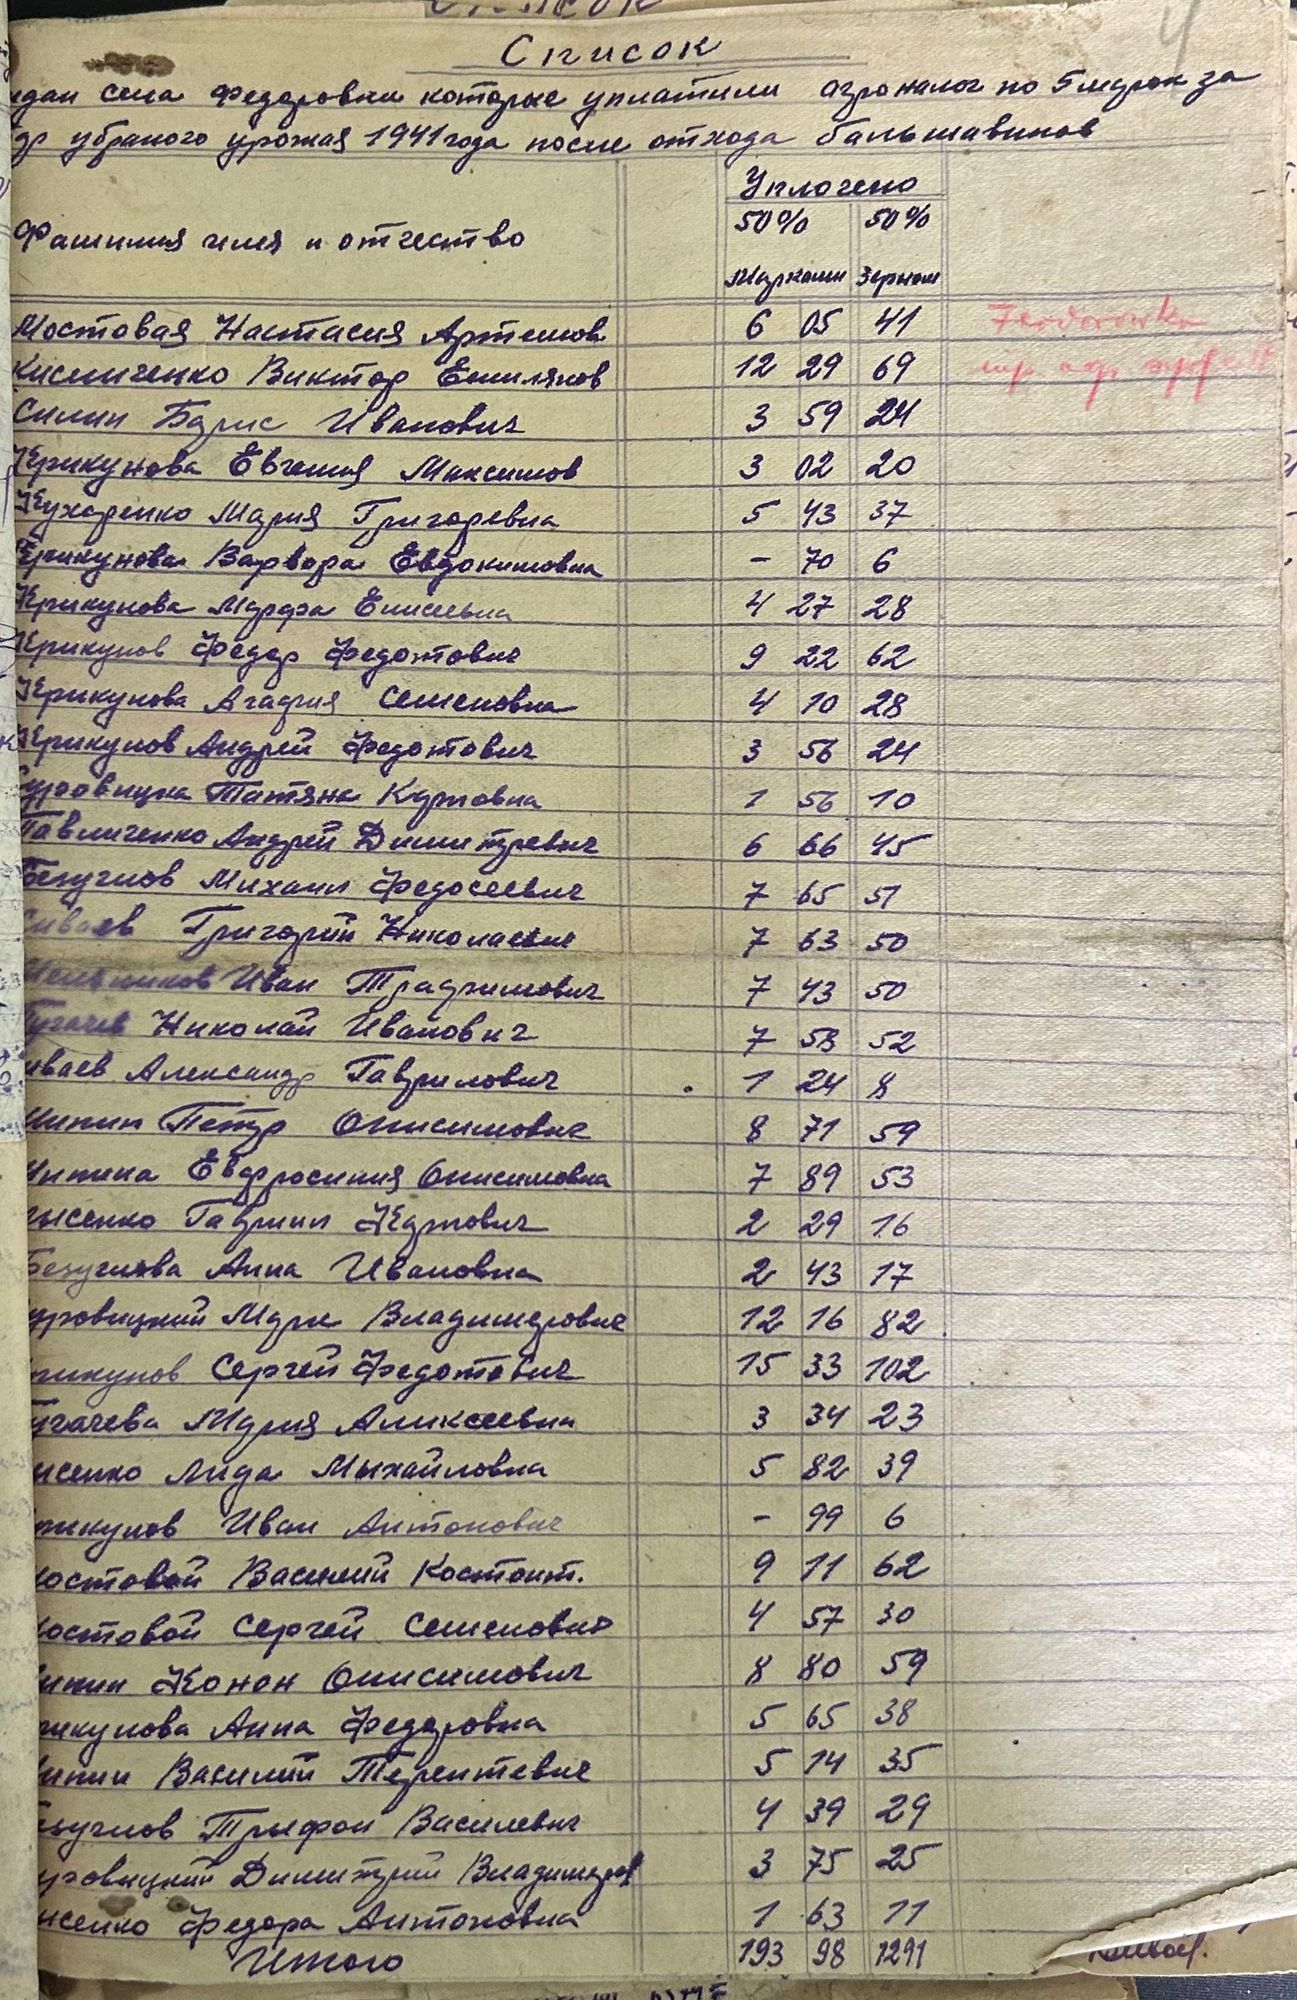 Список
ждан села Федоровки которые уплатили агроналог по 5 марок за
убраного урожая 1941 года после отхода бальшавиков
Уплочено
50% 50%
Фамилия имя и отчество
Марками Зерном
Мостовая Настасия Артемов 6 05 41
Кисличенко Виктор Емилянов 12 29 69
Силин Барис Иванович 3 59 24
Крикунова Евгения Максимов 3 02 20
Кухаренко Мария Григаревна 5 43 37
Крикунова Варвара Евдокимовна - 70 6
Крикунова Марфа Елисеевна 4 27 28
Крикунов Федор Федотович 9 22 62
Крикунова Агафия Семеновна 4 10 28
Крикунов Андрей Федотович 3 56 24
Татяна Карповна 1 56 10
Павличенко Андрей Димитревич 6 66 45
Безуглов Михаил Федосеевич 7 65 51
Сиваев Григорий Николаевич 7 63 50
Мельников Иван Трафимович 7 43 50
Пугачев Николай Иванович 7 53 52
иваев Александр Гаврилович 1 24 8
Минин Петр Онисимович 8 71 59
Минина Евфросиния Онисимовна 7 89 53
ысенко Гаврил Карпович 2 29 16
Безуглова Анна Ивановна 2 43 17
уровицкий Марк Владимерович 12 16 82
рикунов Сергей Федотович 15 33 102
угачева Мария Аликсеевна 3 34 23
исенко Лида Мыхайловна 5 82 39
рикунов Иван Антонович - 99 6
остовой Василий Костонт. 9 11 62
остовой Сергей Семенович 4 57 30
инин Конон Онисимович 8 80 59
икунова Анна Федоровна 5 65 38
инин Василий Терентевич 5 14 35
зуглов Трыфон Василевич 4 39 29
уровицкий Димитрий Владимеров 3 75 25
исенко Федора Антоновна 1 63 11
Итого 193 98 1291